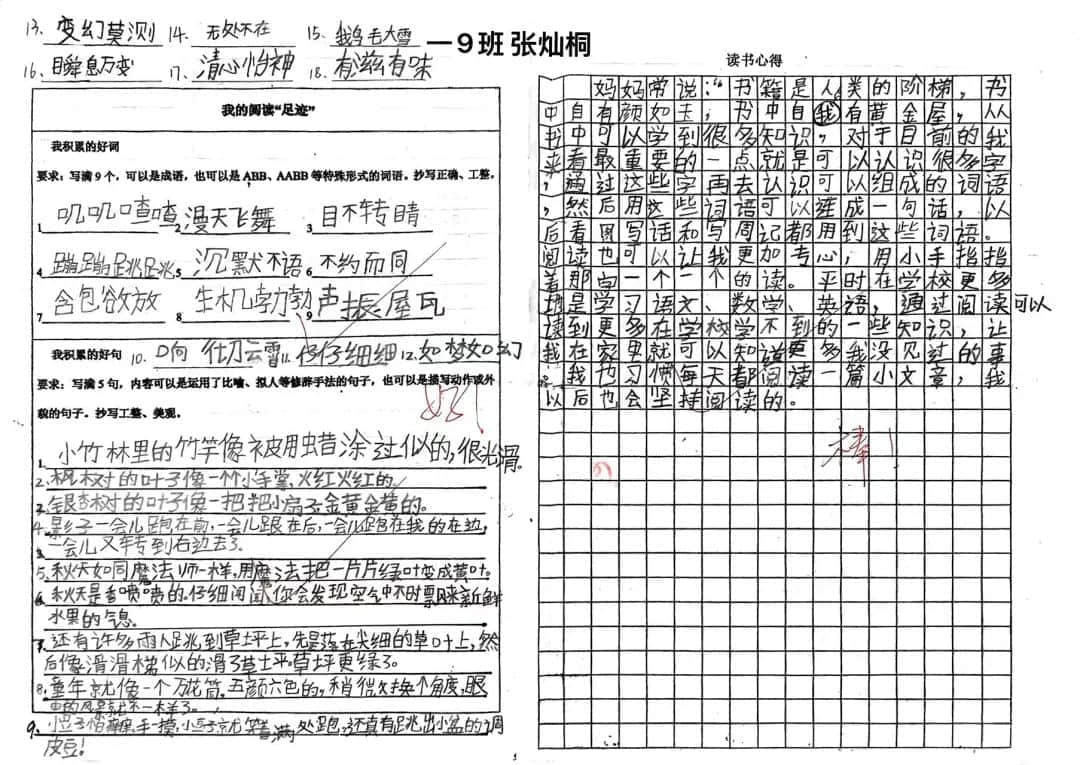 13、变幻莫测 14、无处不在 15、我鸟毛大雪
16、瞬息万变 17、清心怡神 18、有滋有味
一9班 张灿桐
我的阅读“足迹”
我积累的好词
要求：写满9个，可以是成语，也可以是ABB、AABB等特殊形式的词语。抄写正确、工整。
1 叽叽喳喳 2 漫天飞舞 3 目不转睛
4 蹦蹦跳跳 5 沉默不语 6 不约而同
7 含包欲放 8 生机勃勃 9 声振屋瓦
我积累的好句 10、响彻云雪 11、仔仔细细 12、如梦如幻
要求：写满5句，内容可以是运用了比喻、拟人等修辞手法的句子，也可以是描写动作或外
貌的句子。抄写工整、美观。
好！
1、小竹林里的竹笋像被用蜡涂过似的，很光滑。
2、枫树的叶子像一个个小手掌，火红火红的。
3、银杏树的叶子像一把把小扇子，金黄金黄的。
4、影子一会儿跑在前，一会儿跟在后，一会儿跑在我的左边，
一会儿又转到右边去了。
5、秋天如同魔法师一样，用魔法把一片片绿叶变成黄叶。
6、秋天是香喷喷的，仔细闻闻，你会发现空气中不时飘来新鲜
水果的气息。
7、还有许多雨人跳到草坪上，先是落在尖细的草叶上，然
后像滑滑梯似的滑了草坪。草坪更绿了。
8、童年就像一个万花筒，五颜六色的，稍微换个角度，眼
中的风景就不一样了。
9、小豆子怕痒痒，手一摸，小豆子就笑着满处跑，还真有跳出小盆的调
皮豆！
读书心得
妈妈常说：“书籍是人类的阶梯，书
中自有颜如玉，书中自有黄金屋，从
书中可以学到很多知识，对于目前的我
来看最重要的一点就是可以认识很多字
，通过这些字再去认识可以组成的词语
，然后用这些词语可以连成一句话，以
后看图写话和写周记都用到这些词语。
阅读也可以让我更加专心，用小手指指
着那向一个一个的读。平时在学校更多
地是学习语文、数学、英语，通过阅读可以
读到更多在学校学不到的一些知识，让
我在家里就可以知道更多我没见过的事
。我也习惯每天都阅读一篇小文章，我
以后也会坚持阅读的。
棒！